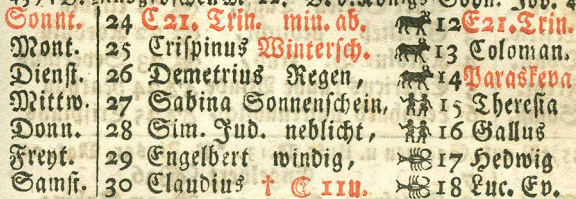 Sonnt. 24 E21. Trin. min. ab. 12 E21. Trin.
Mont. 25 Crispinus Wintersch. 13 Coloman.
Dienst. 26 Demetrius Regen, 14 Paraskeva
Mittw. 27 Sabina Sonnenschein, 15 Theresia
Donn. 28 Sim. Jud. neblicht, 16 Gallus
Freyt. 29 Engelbert windig, 17 Hedwig
Samst. 30 Claudius † ☾ 11U. 18 Luc. Ev.